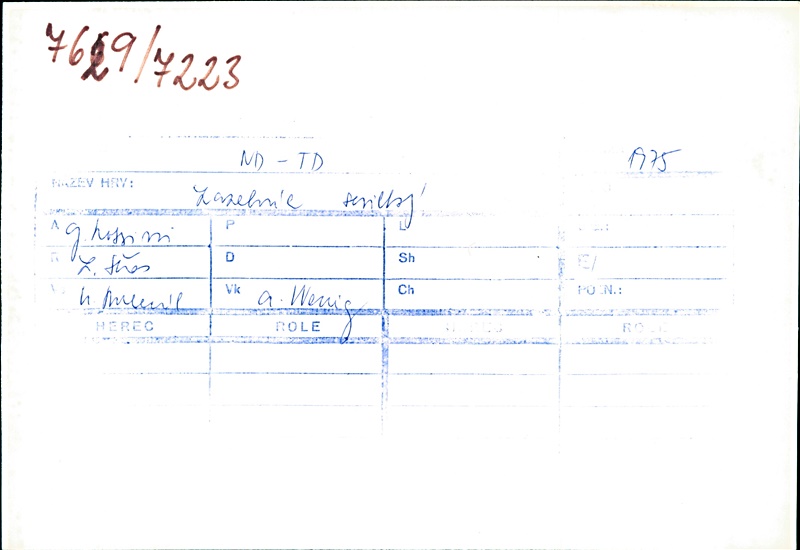 7629/7223
ND - TD 1975
NÁZEV HRY: Lazebník sevillský
A G. Rossini P L
R D Sh E/
V Vk A. Wenig Ch POZN.:
HEREC ROLE HEREC ROLE